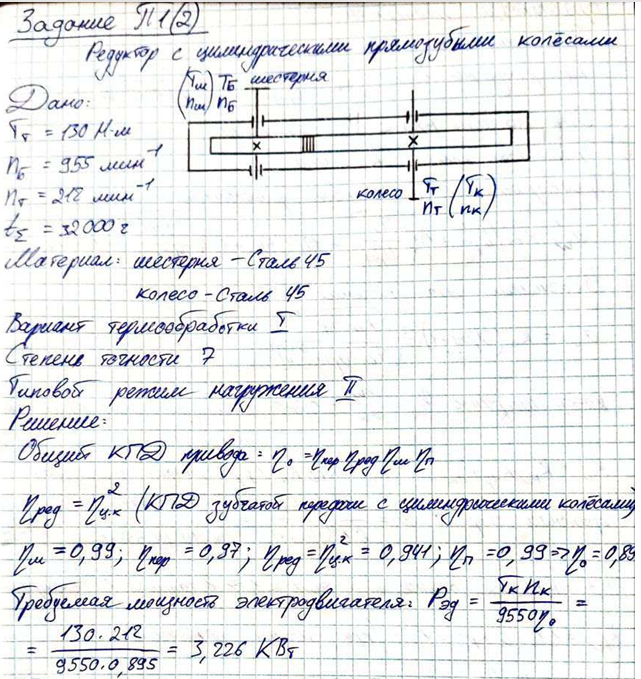 Задание П1(2)
Редуктор с цилиндрическими прямозубыми колёсами
(Tш nш) Tб nб шестерня
Дано:
Tт = 130 Н·м
nб = 955 мин⁻¹
nт = 212 мин⁻¹
колесо Tт nт (Tк nк)
tΣ = 32000 ч
Материал: шестерня – Сталь 45
колесо – Сталь 45
Вариант термообработки I
Степень точности 7
Типовой режим нагружения II
Решение:
Общий КПД привода: η₀ = ηпер ηред ηм ηп
ηред = ηц.к² (КПД зубчатой передачи с цилиндрическими колёсами)
ηм = 0,99; ηпер = 0,97; ηред = ηц.к² = 0,941; ηп = 0,99 => η₀ = 0,89
Требуемая мощность электродвигателя: Pэд = Tк nк / 9550 η₀ =
= 130·212 / 9550·0,895 = 3,226 КВт